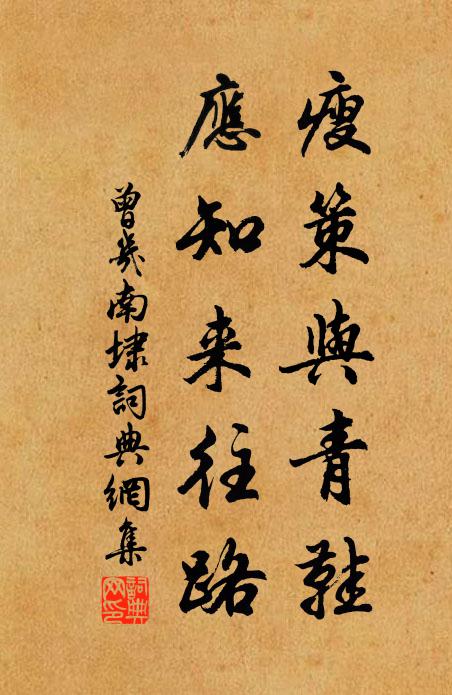 瘦策與青鞋
應知来往路
曾幾南埭詞典網集
詞典网印